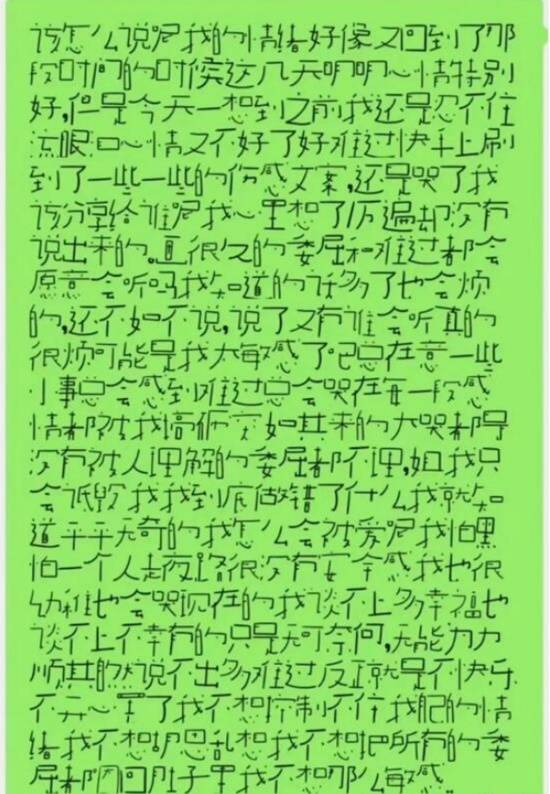 该怎么说呢我的情绪好像又回到了那
段时间的时候这几天明明心情特别
好,但是今天一想到之前我还是忍不住
流眼口心情又不好了好难过快手上刷
到了一些一些的伤感文案,还是哭了我
该分享给谁呢我心里想了历遍却没有
说出来的。画很久的委屈和难过都会
愿意会听吗我知道的话多了也会烦
的,还不如不说,说了又有谁会听真的
很烦可能是我太敏感了吧总在意一些
小事总会感到难过总会哭在每一段感
情都被我搞砸突如其来的大哭都是
没有被人理解的委屈都不理,姐我只
会诋毁我我到底做错了什么我就知
道平平无奇的我怎么会被爱呢我怕黑
怕一个人走夜路很没有安全感我也很
幼稚也会哭现在的我谈不上多幸福也
谈不上不幸有的只是无可奈何,无能力力
顺其的然说不出多难过反正就是不快乐
不开心罢了我不想控制不住我肥的情
绪我不想胡思乱想我不想把所有的委
屈都咽回肚子里我不想那么敏感.